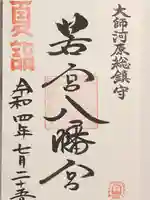 大師河原総鎮守
若宮八幡宮
夏詣
令和四年七月二十五